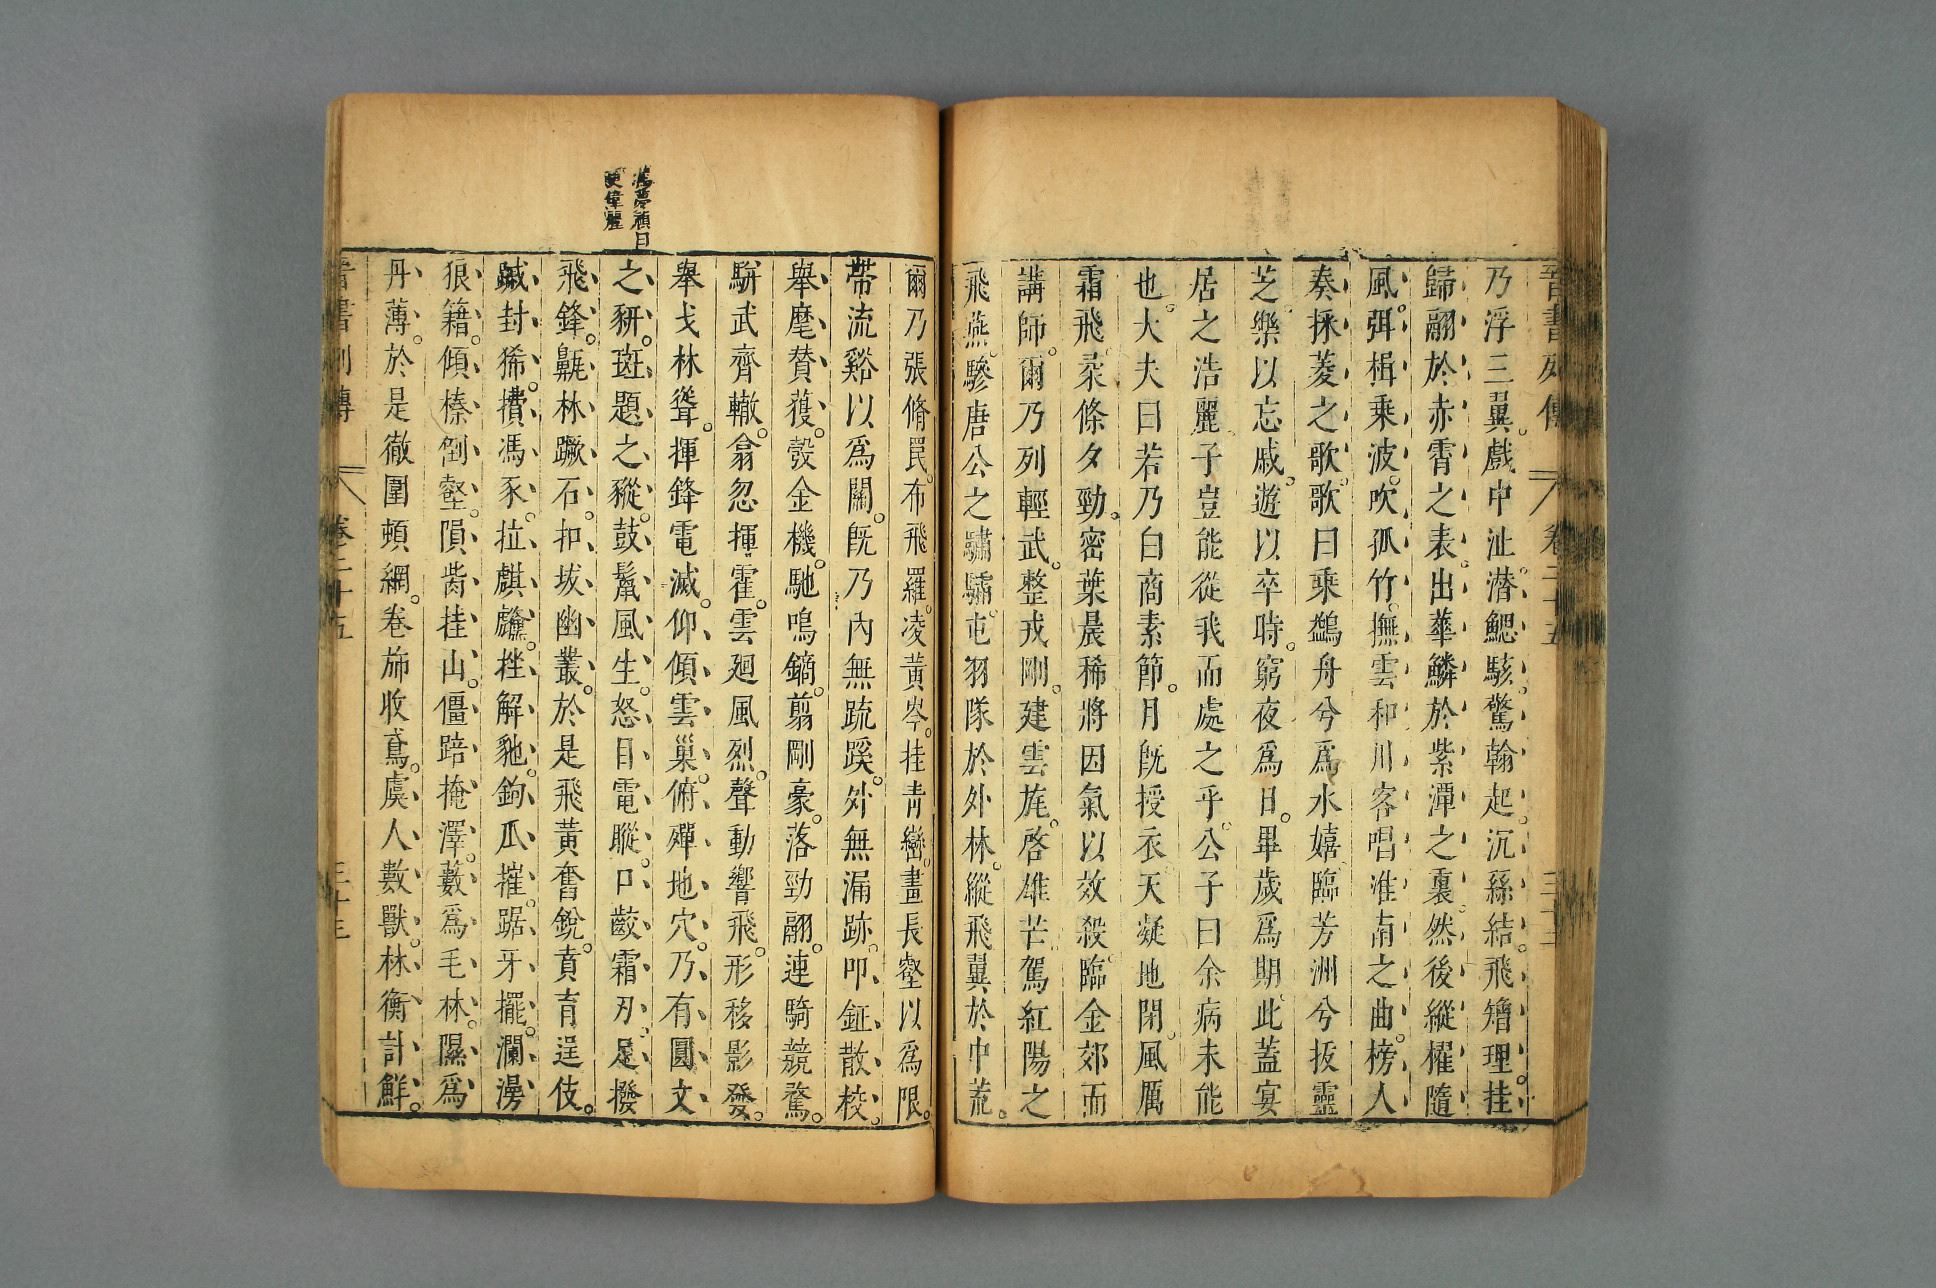 晉書列傳 卷二十五 三十三
乃浮三翼。戲中沚。潛鰓駭。驚翰起。沉絲結。飛矰理。挂
歸翮於赤霄之表。出華鱗於紫潭之裏。然後縱櫂隨
風。弭楫乘波。吹孤竹。撫雲和。川客唱淮南之曲。榜人
奏採菱之歌。歌曰乘鷁舟兮爲水嬉臨芳洲兮拔靈
芝。樂以忘戚。遊以卒時。窮夜爲日。畢歲爲期。此蓋宴
居之浩麗子豈能從我而處之乎。公子曰余病未能
也。大夫曰若乃白商素節。月旣授衣。天凝地閉。風厲
霜飛。柔條夕勁。密葉晨稀將因氣以效殺。臨金郊而
講師。爾乃列輕武。整戎剛。建雲旄。啓雄芒。駕紅陽之
飛燕。驂唐公之驌驦。屯羽隊於外林。縱飛翼於中荒。
爾乃張脩罠。布飛羅。凌黃岑。挂青巒。畫長壑以爲限。
帶流谿以爲關。旣乃內無疏蹊。外無漏跡。叩鉦散校。
舉麾贊獲。彀金機。馳鳴鏑。剪剛豪。落勁翮。連騎競騖。
駢武齊轍。翕忽揮霍。雲廻風烈。聲動響飛。形移影發。
舉戈林聳。揮鋒電滅。仰傾雲巢。俯殫地穴。乃有圓文
之豜。斑題之豵。鼓鬣風生。怒目電瞛。口齩霜刃。足撥
飛鋒。齀林蹶石。扣坺幽叢。於是飛黃奮銳。賁育逞伎。
蹴封狶。㩌馮豕。拉麒麟。挫解豸。鉤爪摧。踞牙擺。瀾漫
狼籍。傾榛倒壑。隕胔挂山。僵踣掩澤。藪爲毛林。隰爲
丹薄。於是徹圍頓網。卷旆收鳶。虞人數獸。林衡計鮮。
晉書列傳 卷二十五 三十三
馮夢禎曰
更偉麗